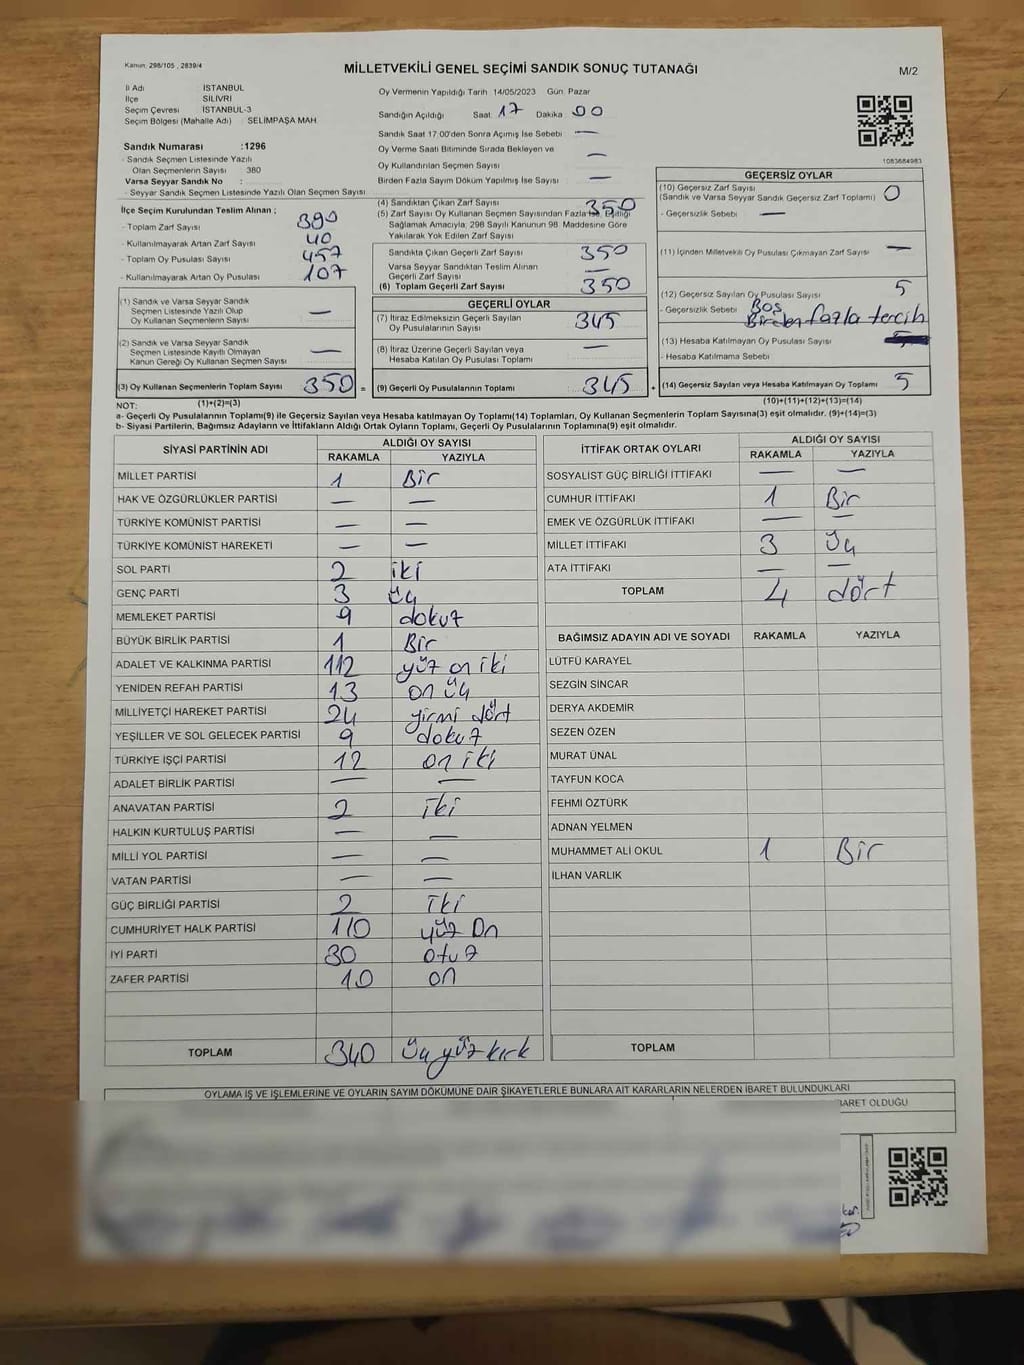 Kanun, 298/105 , 2839/4
MİLLETVEKİLİ GENEL SEÇİMİ SANDIK SONUÇ TUTANAĞI
M/2
İl Adı İSTANBUL
İlçe SİLİVRİ
Seçim Çevresi İSTANBUL-3
Seçim Bölgesi (Mahalle Adı) : SELİMPAŞA MAH.
Oy Vermenin Yapıldığı Tarih 14/05/2023 Gün: Pazar
Sandığın Açıldığı Saat: 17 Dakika 00
Sandık Saat 17:00'den Sonra Açımış İse Sebebi —
Oy Verme Saati Bitiminde Sırada Bekleyen ve
Oy Kullandırılan Seçmen Sayısı —
Birden Fazla Sayım Döküm Yapılmış İse Sayısı —
1083684983
Sandık Numarası :1296
- Sandık Seçmen Listesinde Yazılı
Olan Seçmenlerin Sayısı 380
Varsa Seyyar Sandık No :
- Seyyar Sandık Seçmen Listesinde Yazılı Olan Seçmen Sayısı
İlçe Seçim Kurulundan Teslim Alınan ;
- Toplam Zarf Sayısı 390
- Kullanılmayarak Artan Zarf Sayısı 40
- Toplam Oy Pusulası Sayısı 457
- Kullanılmayarak Artan Oy Pusulası 107
(1) Sandık ve Varsa Seyyar Sandık
Seçmen Listesinde Yazılı Olup
Oy Kullanan Seçmenlerin Sayısı —
(2) Sandık ve Varsa Seyyar Sandık
Seçmen Listesinde Kayıtlı Olmayan
Kanun Gereği Oy Kullanan Seçmen Sayısı —
(3) Oy Kullanan Seçmenlerin Toplam Sayısı 350 =
(1)+(2)=(3)
(4) Sandıktan Çıkan Zarf Sayısı 350
(5) Zarf Sayısı Oy Kullanan Seçmen Sayısından Fazla İse, Eşitliği
Sağlamak Amacıyla, 298 Sayılı Kanunun 98. Maddesine Göre
Yakılarak Yok Edilen Zarf Sayısı
Sandıkta Çıkan Geçerli Zarf Sayısı 350
Varsa Seyyar Sandıktan Teslim Alınan
Geçerli Zarf Sayısı —
(6) Toplam Geçerli Zarf Sayısı 350
GEÇERLİ OYLAR
(7) İtiraz Edilmeksizin Geçerli Sayılan
Oy Pusulalarının Sayısı 345
(8) İtiraz Üzerine Geçerli Sayılan veya
Hesaba Katılan Oy Pusulası Toplamı —
(9) Geçerli Oy Pusulalarının Toplamı 345 +
GEÇERSİZ OYLAR
(10) Geçersiz Zarf Sayısı
(Sandık ve Varsa Seyyar Sandık Geçersiz Zarf Toplamı) 0
- Geçersizlik Sebebi —
(11) İçinden Milletvekili Oy Pusulası Çıkmayan Zarf Sayısı —
(12) Geçersiz Sayılan Oy Pusulası Sayısı 5
- Geçersizlik Sebebi Boş
Birden fazla tercih
(13) Hesaba Katılmayan Oy Pusulası Sayısı
- Hesaba Katılmama Sebebi
(14) Geçersiz Sayılan veya Hesaba Katılmayan Oy Toplamı 5
(10)+(11)+(12)+(13)=(14)
NOT:
a- Geçerli Oy Pusulalarının Toplamı(9) ile Geçersiz Sayılan veya Hesaba katılmayan Oy Toplamı(14) Toplamları, Oy Kullanan Seçmenlerin Toplam Sayısına(3) eşit olmalıdır. (9)+(14)=(3)
b- Siyasi Partilerin, Bağımsız Adayların ve İttifakların Aldığı Ortak Oyların Toplamı, Geçerli Oy Pusulalarının Toplamına(9) eşit olmalıdır.
SİYASİ PARTİNİN ADI ALDIĞI OY SAYISI
RAKAMLA YAZIYLA
MİLLET PARTİSİ 1 Bir
HAK VE ÖZGÜRLÜKLER PARTİSİ — —
TÜRKİYE KOMÜNİST PARTİSİ — —
TÜRKİYE KOMÜNİST HAREKETİ — —
SOL PARTİ 2 iki
GENÇ PARTİ 3 üç
MEMLEKET PARTİSİ 9 dokuz
BÜYÜK BİRLİK PARTİSİ 1 Bir
ADALET VE KALKINMA PARTİSİ 112 yüz on iki
YENİDEN REFAH PARTİSİ 13 on üç
MİLLİYETÇİ HAREKET PARTİSİ 24 yirmi dört
YEŞİLLER VE SOL GELECEK PARTİSİ 9 dokuz
TÜRKİYE İŞÇİ PARTİSİ 12 on iki
ADALET BİRLİK PARTİSİ — —
ANAVATAN PARTİSİ 2 iki
HALKIN KURTULUŞ PARTİSİ — —
MİLLİ YOL PARTİSİ — —
VATAN PARTİSİ — —
GÜÇ BİRLİĞİ PARTİSİ 2 iki
CUMHURİYET HALK PARTİSİ 110 yüz On
İYİ PARTİ 30 otuz
ZAFER PARTİSİ 10 on
TOPLAM 340 üç yüz kırk
İTTİFAK ORTAK OYLARI ALDIĞI OY SAYISI
RAKAMLA YAZIYLA
SOSYALİST GÜÇ BİRLİĞİ İTTİFAKI — —
CUMHUR İTTİFAKI 1 Bir
EMEK VE ÖZGÜRLÜK İTTİFAKI — —
MİLLET İTTİFAKI 3 Üç
ATA İTTİFAKI — —
TOPLAM 4 dört
BAĞIMSIZ ADAYIN ADI VE SOYADI RAKAMLA YAZIYLA
LÜTFÜ KARAYEL
SEZGİN SİNCAR
DERYA AKDEMİR
SEZEN ÖZEN
MURAT ÜNAL
TAYFUN KOCA
FEHMİ ÖZTÜRK
ADNAN YELMEN
MUHAMMET ALİ OKUL 1 Bir
İLHAN VARLIK
TOPLAM
OYLAMA İŞ VE İŞLEMLERİNE VE OYLARIN SAYIM DÖKÜMÜNE DAİR ŞİKAYETLERLE BUNLARA AİT KARARLARIN NELERDEN İBARET BULUNDUKLARI
BARET OLDUĞU